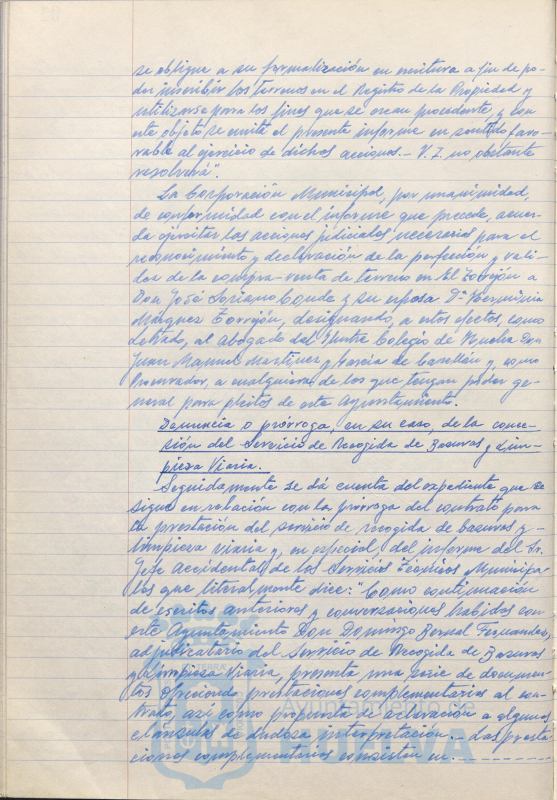 se obligue a su formalización en escritura a fin de po-
der inscribir los terrenos en el Registro de la Propiedad y
utilizarse para los fines que se crean procedente, y con
este objeto se emite el presente informe en sentido favo-
rable al ejercicio de dichas acciones.- V.I. no obstante
resolverá".
La Corporación Municipal, por unanimidad,
de conformidad con el informe que precede, acuer-
da ejercitar las acciones judiciales necesarias para el
reconocimiento y declaración de la perfección y vali-
dez de la compra-venta de terreno en El Torrejón a
Don José Soriano Conde y su esposa Dª Herminia
Márquez Torrejón, designando, a estos efectos, como
letrado, al abogado del Iltre Colegio de Huelva Don
Juan Manuel Martínez y García de Casellón y, como
Procurador, a cualquiera de los que tengan poder ge-
neral para pleitos de este Ayuntamiento.
Denuncia o prórroga, en su caso, de la conce-
sión del Servicio de Recogida de Basuras y Lim-
pieza Viaria.
Seguidamente se dá cuenta del expediente que se
sigue en relación con la prórroga del contrato para
la prestación del servicio de recogida de basuras y
limpieza viaria y, en especial, del informe del Sr.
Jefe accidental de los Servicios Técnicos Municipa-
les que literalmente dice: "Como continuación
de escritos anteriores y conversaciones habidas con
este Ayuntamiento Don Domingo Bernal Fernández,
adjudicatario del Servicio de Recogida de Basuras
y Limpieza Viaria, presenta una serie de documen-
tos ofreciendo prestaciones complementarias al con-
trato, así como propuesta de aclaración a algunas
cláusulas de dudosa interpretación.- Las presta-
ciones complementarias consisten en.- - - - - - - -
Ayuntamiento de
HUELVA